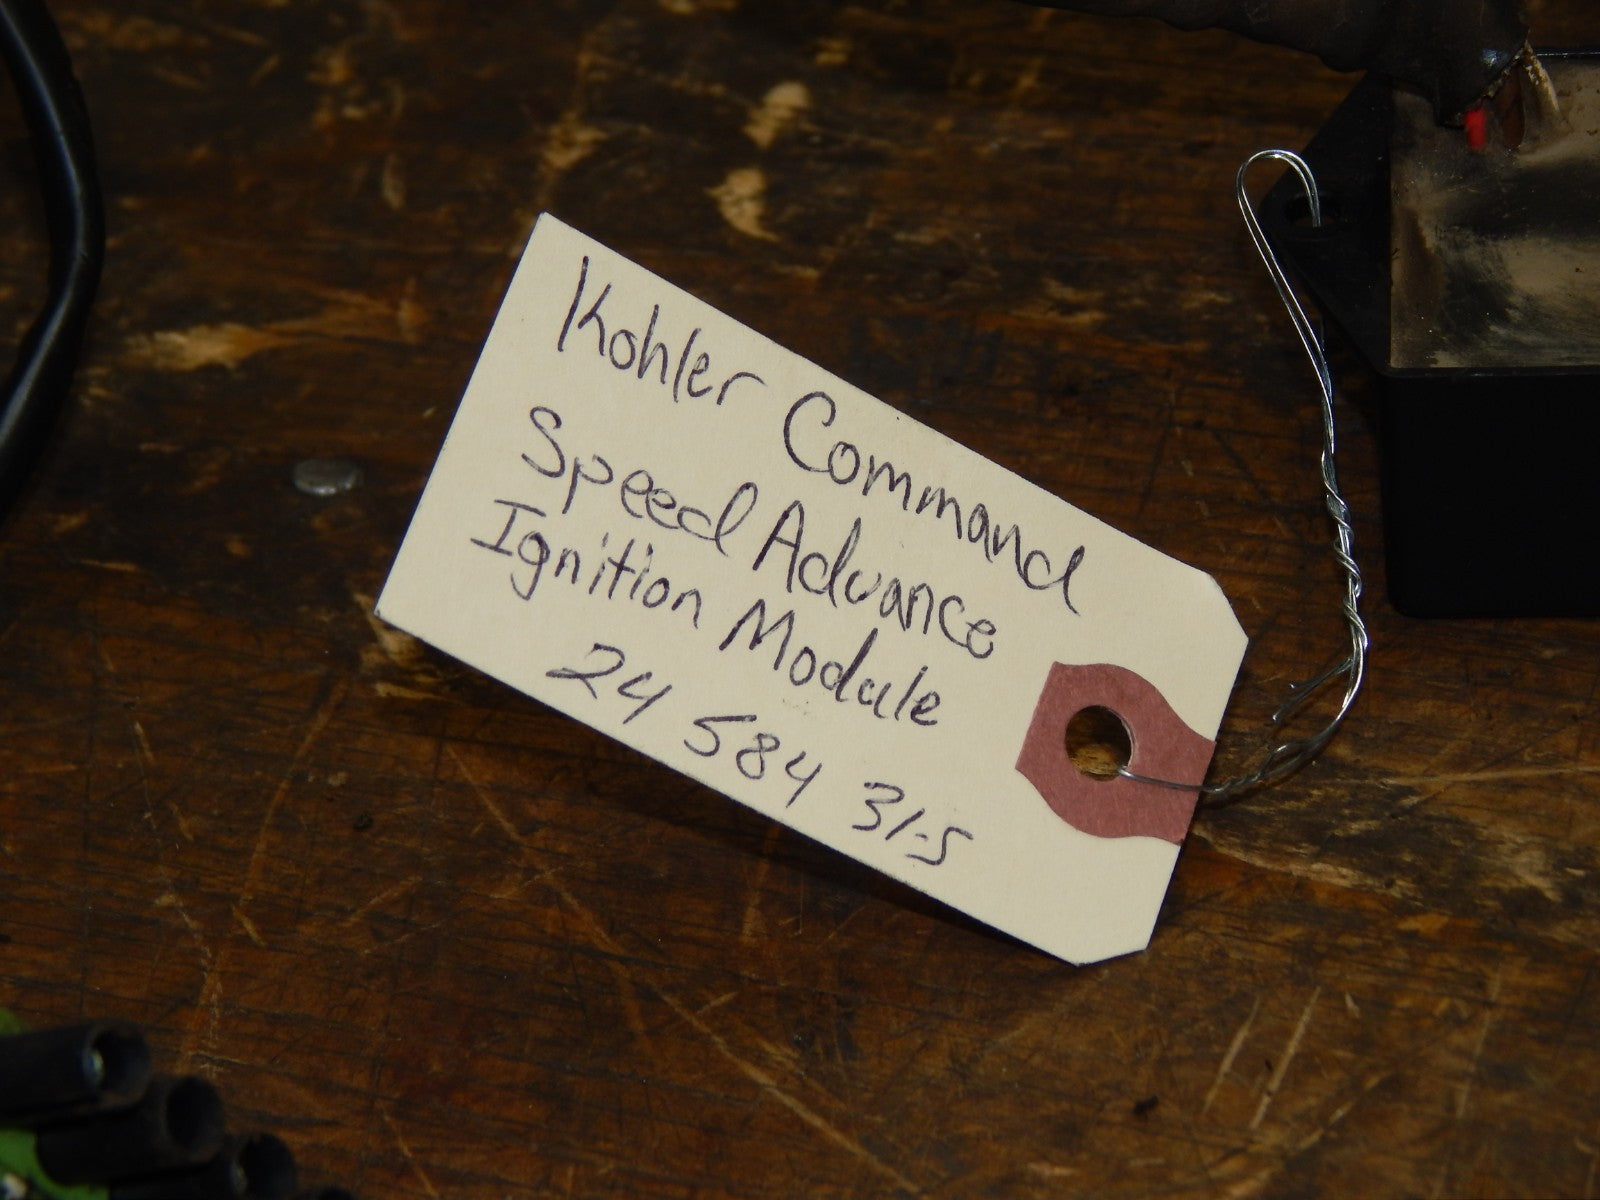 Kohler Command
Speed Advance
Ignition Module
24 584 31-S